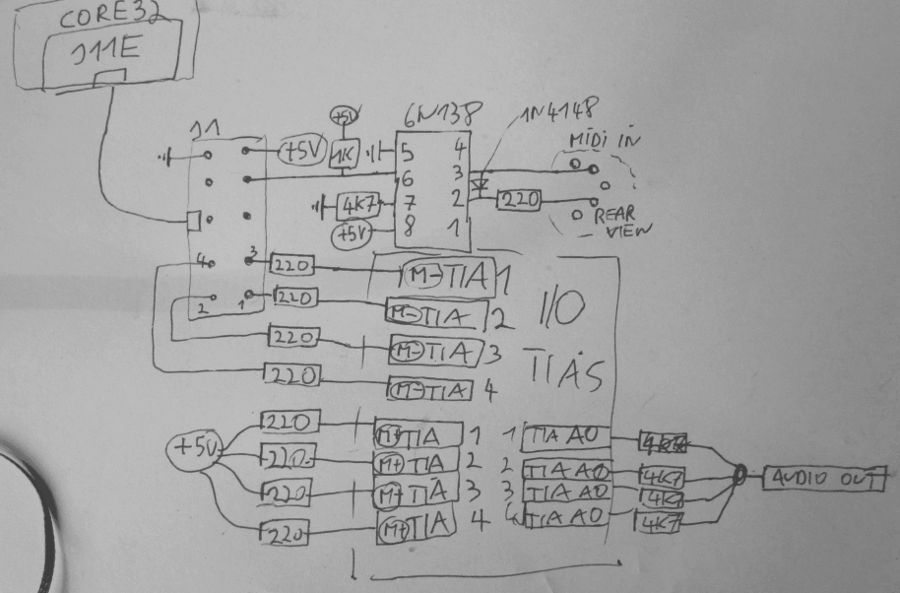 CORE32
J11E
J1
+5V
+5V
1K
6N138
1N4148
MIDI IN
REAR
VIEW
5 4
6 3
7 2
8 1
4K7
+5V
220
4 3
2 1
220 M- TIA 1
220 M- TIA 2
220 M- TIA 3
220 M- TIA 4
I/O
TIAS
+5V
220 M+ TIA 1
220 M+ TIA 2
220 M+ TIA 3
220 M+ TIA 4
1 TIA AO 4K7
2 TIA AO 4K7
3 TIA AO 4K7
4 TIA AO 4K7
AUDIO OUT